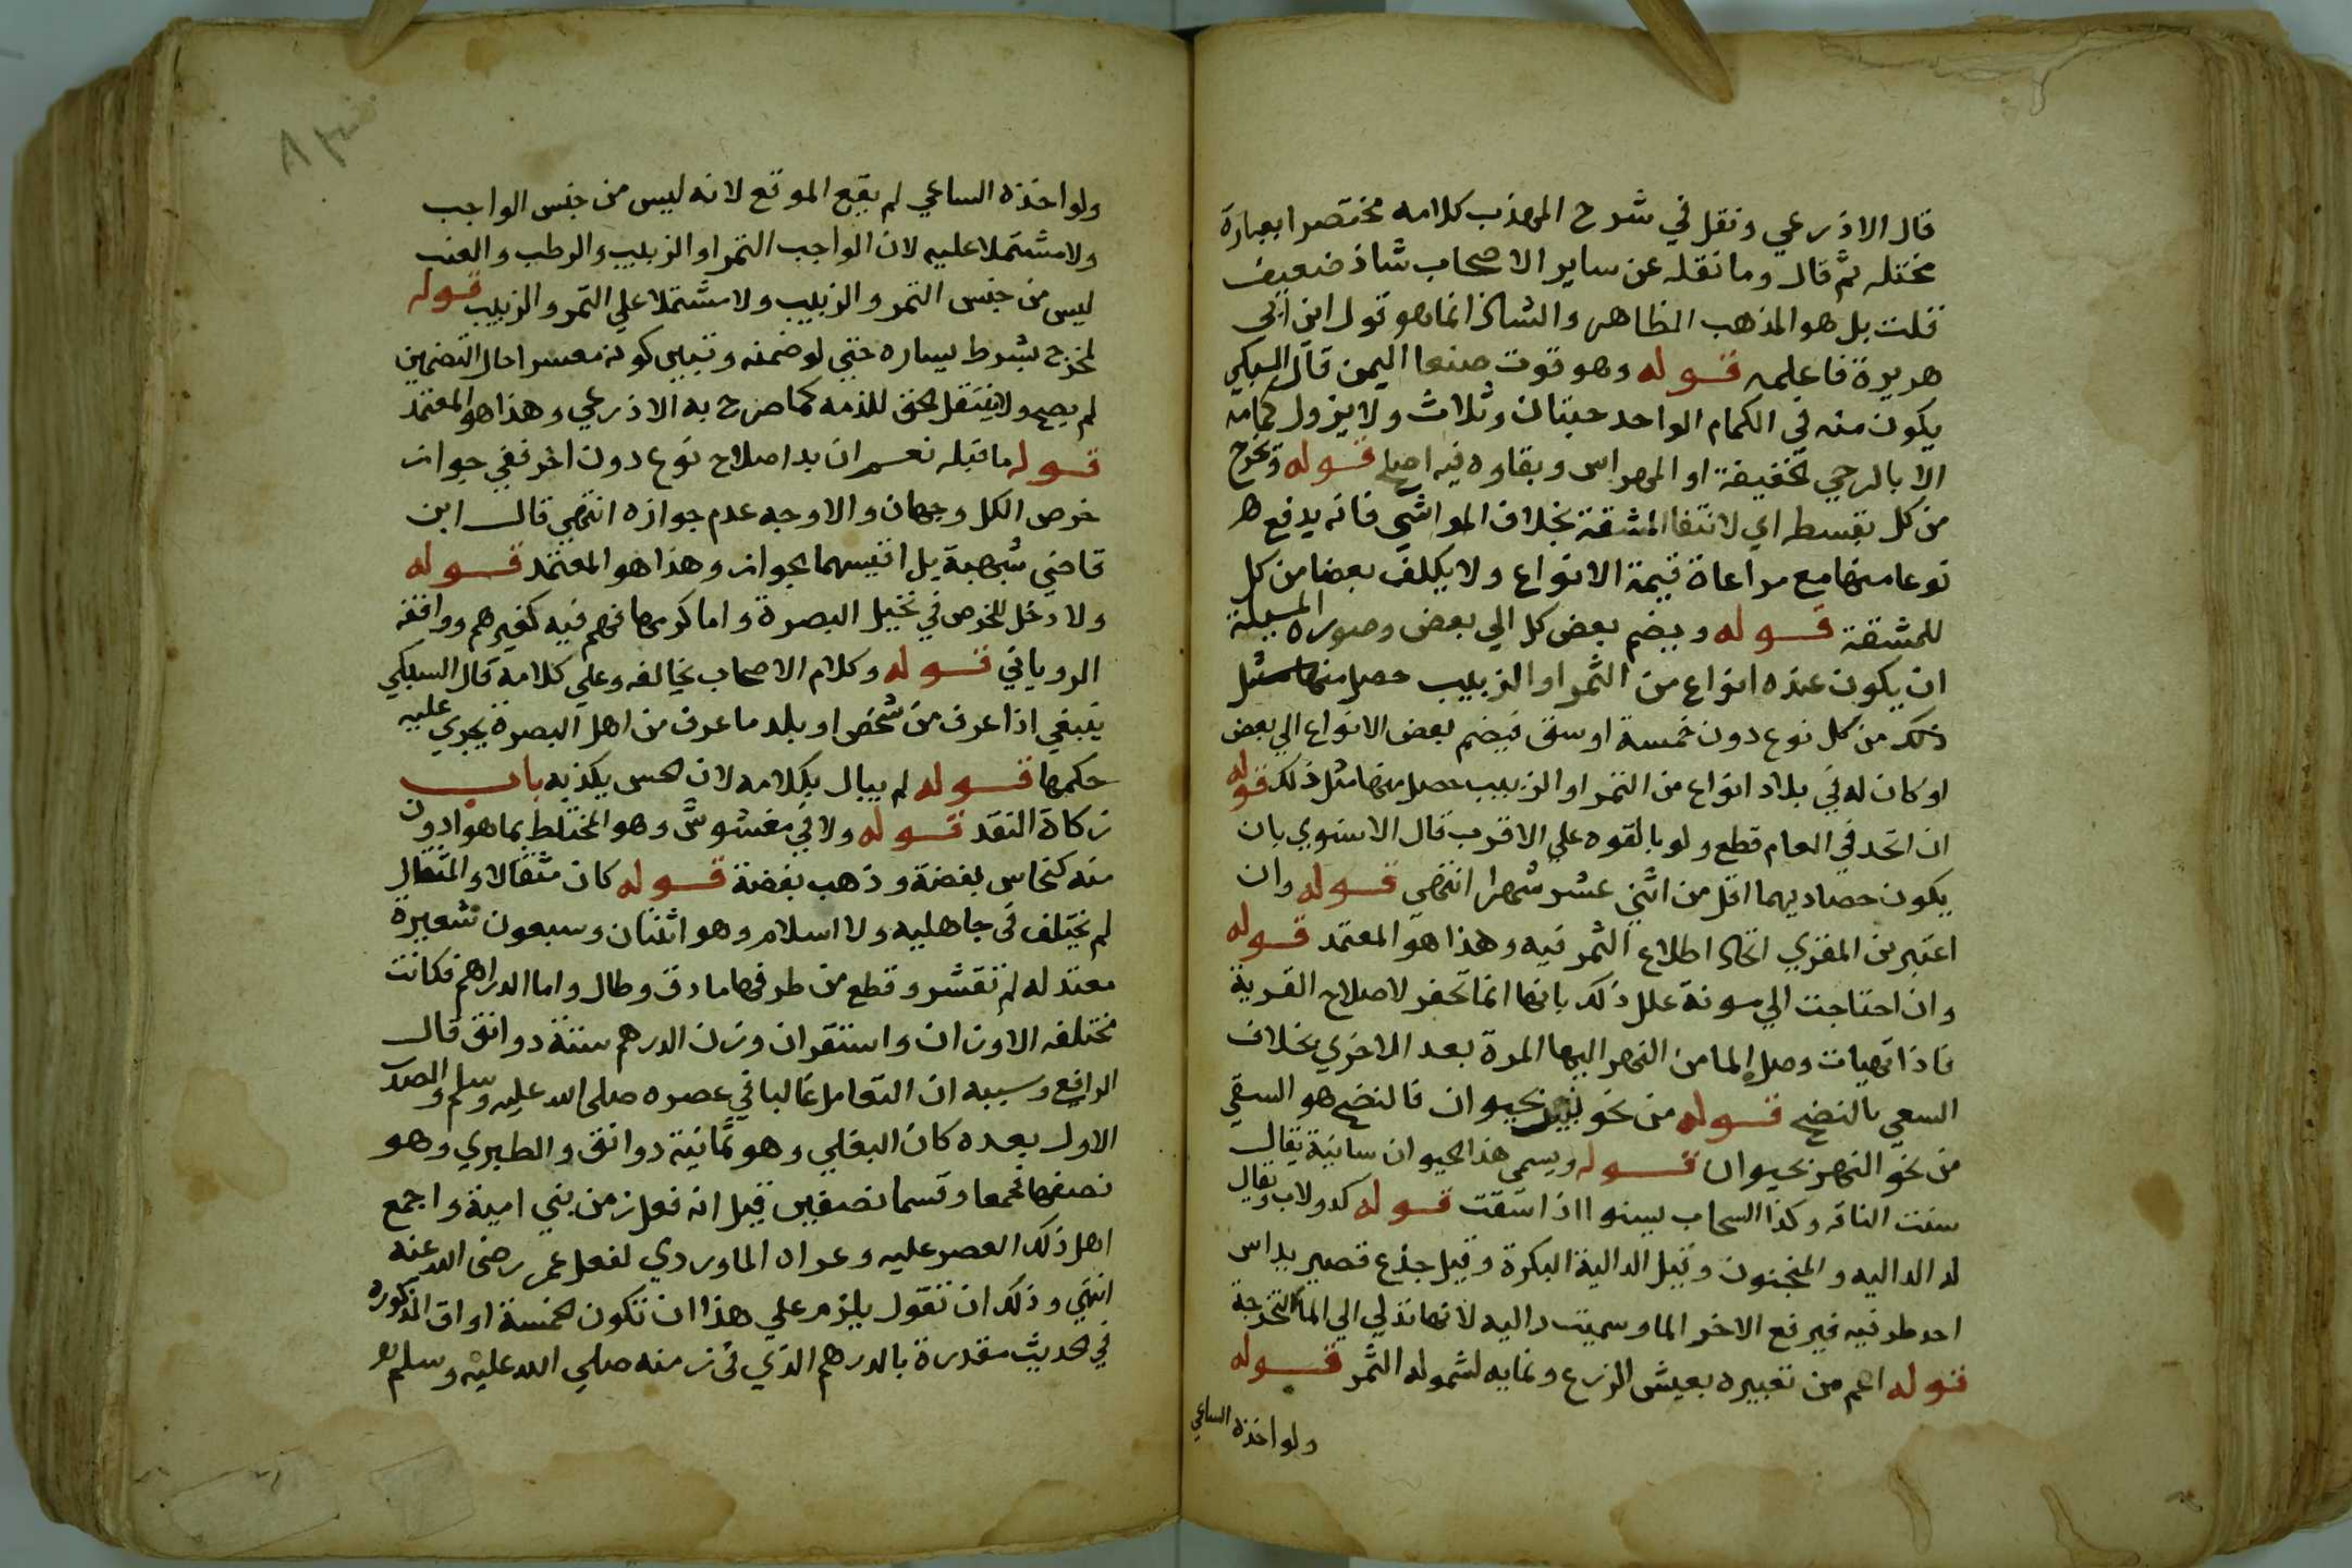 قال الاذرعي ونقل في شرح المهذب كلامه مختصرا بعبارة
مختله ثم قال وما نقله عن ساير الاصحاب شاذ ضعيف
قلت بل هو المذهب الظاهر والشاذ انما هو قول ابن ابي
هريرة فاعلمه قوله وهو قوت صنعا اليمن قال السبكي
يكون منه في الكمام الواحد حبتان وثلاث ولا يزول كمامه
الا بالرحي الخفيفة او المهراس وبقاوه فيه اصلح قوله وتخرج
من كل بقسطه اي لانتفا المشقة بخلاف المواشي فانه يدفع
نوعا منها مع مراعاة قيمة الانواع ولا يكلف بعضا من كل
للمشقة قوله ويضم بعض كل الي بعض وصورة المسيلة
ان يكون عنده انواع من الثمر او الزبيب حصل منها مثل
ذلك من كل نوع دون خمسة اوسق فيضم بعض الانواع الي بعض
او كان له في بلاد انواع من التمر او الزبيب حصل منها مثل ذلك قوله
ان اتحد في العام قطع ولو بالقوه علي الاقرب قال الاسنوي بان
يكون حصاديهما اقل من اثني عشر شهرا انتهي قوله وان
اعتبر بن المقري اتحاد اطلاع الثمر فيه وهذا هو المعتمد قوله
وان احتاجت الي مونة علل ذلك بانها انما تحفر لاصلاح القرية
فاذا تهيات وصل الما من النهر اليها المرة بعد الاخري بخلاف
السعي بالنضح قوله من نحو بحيوان فالنضح هو السقي
من نحو النهر بحيوان قوله ويسمي هذا الحيوان سانية يقال
سنت الناقه وكذا السحاب يسنوا اذا سقت قوله كدولاب ويقال
له الداليه والمنجنون وقيل الدالية البكرة وقيل جذع قصير يداس
احد طرفيه فيرفع الاخر الما وسميت داليه لانها تدلي الي الما لتخرجه
قوله اعم من تعبيره بعيش الزرع ونمايه لشموله الثمر قوله
ولو اخذه الساعي
ولو اخذه الساعي لم يقع الموقع لانه ليس من جنس الواجب
ولا مشتملا عليه لان الواجب التمر او الزبيب والرطب والعنب
ليس من جنس التمر والزبيب ولا مشتملا علي التمر والزبيب قوله
لمخرج بشرط يساره حتي لو ضمنه وتبين كونه معسرا حال التضمين
لم يصح ولا ينتقل الحق للذمه كما صرح به الاذرعي وهذا هو المعتمد
قوله ما قبله نعم ان بدا صلاح نوع دون اخر ففي جواز
خرص الكل وجهان والاوجه عدم جوازه انتهي قال ابن
قاضي شهبة بل اقيسهما الجواز وهذا هو المعتمد قوله
ولا دخل للخرص في نخيل البصرة واما كرمها فهم فيه كغيرهم ووافقه
الروياني قوله وكلام الاصحاب يخالفه وعلي كلامه قال السبكي
ينبغي اذا عرف من شخص او بلد ما عرف من اهل البصرة يجري عليه
حكمها قوله لم يبال بكلامه لان الحس يكذبه باب
زكاة النقد قوله ولا في مغشوش وهو المختلط بما هو ادون
منه كنحاس بفضة وذهب بفضة قوله كان مثقالا والمثقال
لم يختلف في جاهليه ولا اسلام وهو اثنتان وسبعون شعيرة
معتدله لم تقشر وقطع من طرفها ما دق وطال واما الدراهم فكانت
مختلفه الاوزان واستقر ان وزن الدرهم ستة دوانق قال
الرافع وسببه ان التعامل غالبا في عصره صلى الله عليه وسلم والصدر
الاول بعده كان البغلي وهو ثمانية دوانق والطبري وهو
نصفها فجمعا وقسما نصفين قيل انه فعل زمن بني امية واجمع
اهل ذلك العصر عليه وعزاه الماوردي لفعل عمر رضي الله عنه
انتهي وذلك ان تقول يلزم علي هذا ان تكون الخمسة اواق المذكوره
في الحديث مقدرة بالدرهم الذي في زمنه صلي الله عليه وسلم